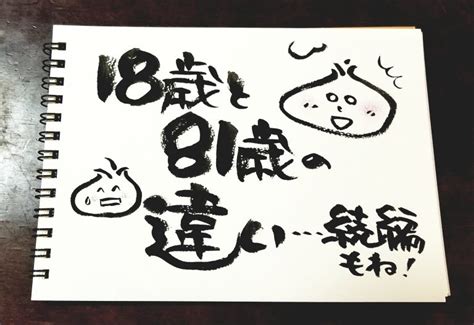 18歳と
81歳の
違い…続編
もね!